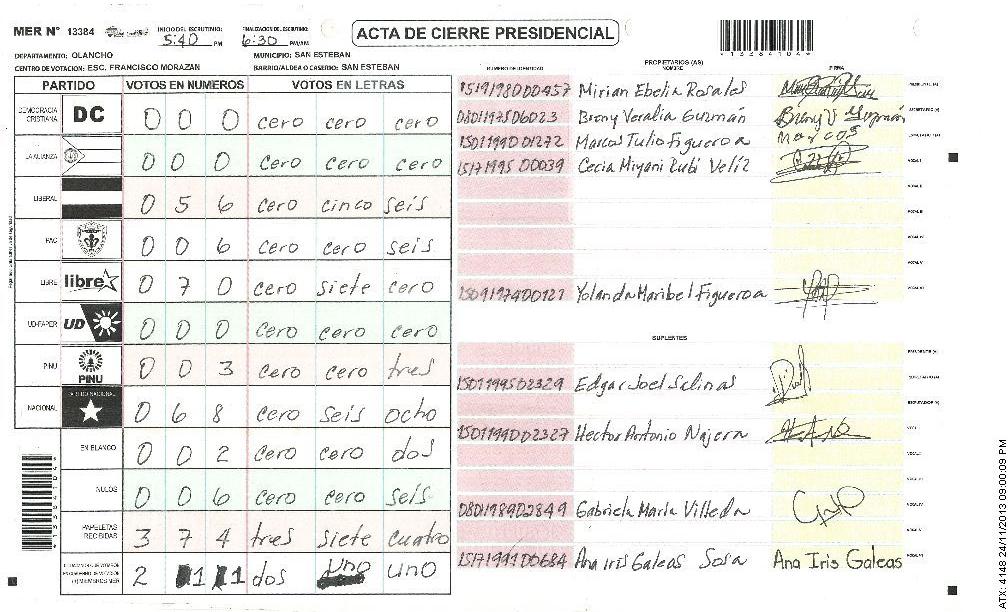 MER N° 13384 INICIO DEL ESCRUTINIO: 5:40 PM FINALIZACION DE ESCRUTINIO: 6:30 PM/AM
ACTA DE CIERRE PRESIDENCIAL
*13384104*
DEPARTAMENTO: OLANCHO MUNICIPIO: SAN ESTEBAN
CENTRO DE VOTACION: ESC. FRANCISCO MORAZAN BARRIO/ALDEA O CASERIO: SAN ESTEBAN
PARTIDO VOTOS EN NUMEROS VOTOS EN LETRAS
DEMOCRACIA CRISTIANA DC 0 0 0 cero cero cero
LA ALIANZA 0 0 0 cero cero cero
LIBERAL 0 5 6 cero cinco seis
PAC 0 0 6 cero cero seis
LIBRE libre 0 7 0 cero siete cero
UD-FAPER UD 0 0 0 cero cero cero
PINU PINU 0 0 3 cero cero tres
NACIONAL 0 6 8 cero seis ocho
EN BLANCO 0 0 2 cero cero dos
NULOS 0 0 6 cero cero seis
PAPELETAS RECIBIDAS 3 7 4 tres siete cuatro
2 1 1 dos uno uno
PROPIETARIOS (AS)
NUMERO DE IDENTIDAD NOMBRE FIRMA
1519198000457 Mirian Ebelia Rosales
0801197506023 Breny Veralia Guzmán
1501199001272 Marcos Tulio Figueroa Marcos
1517199500039 Cecia Miyani Rubi Veliz
1509197400127 Yolanda Maribel Figueroa
SUPLENTES
1501199502329 Edgar Joel Salinas
1501199002327 Hector Antonio Najera
0801198902849 Gabriela Maria Villeda
1517199100684 Ana iris Galeas Sosa Ana Iris Galeas
ATX: 4148 24/11/2013 09:00:09 PM